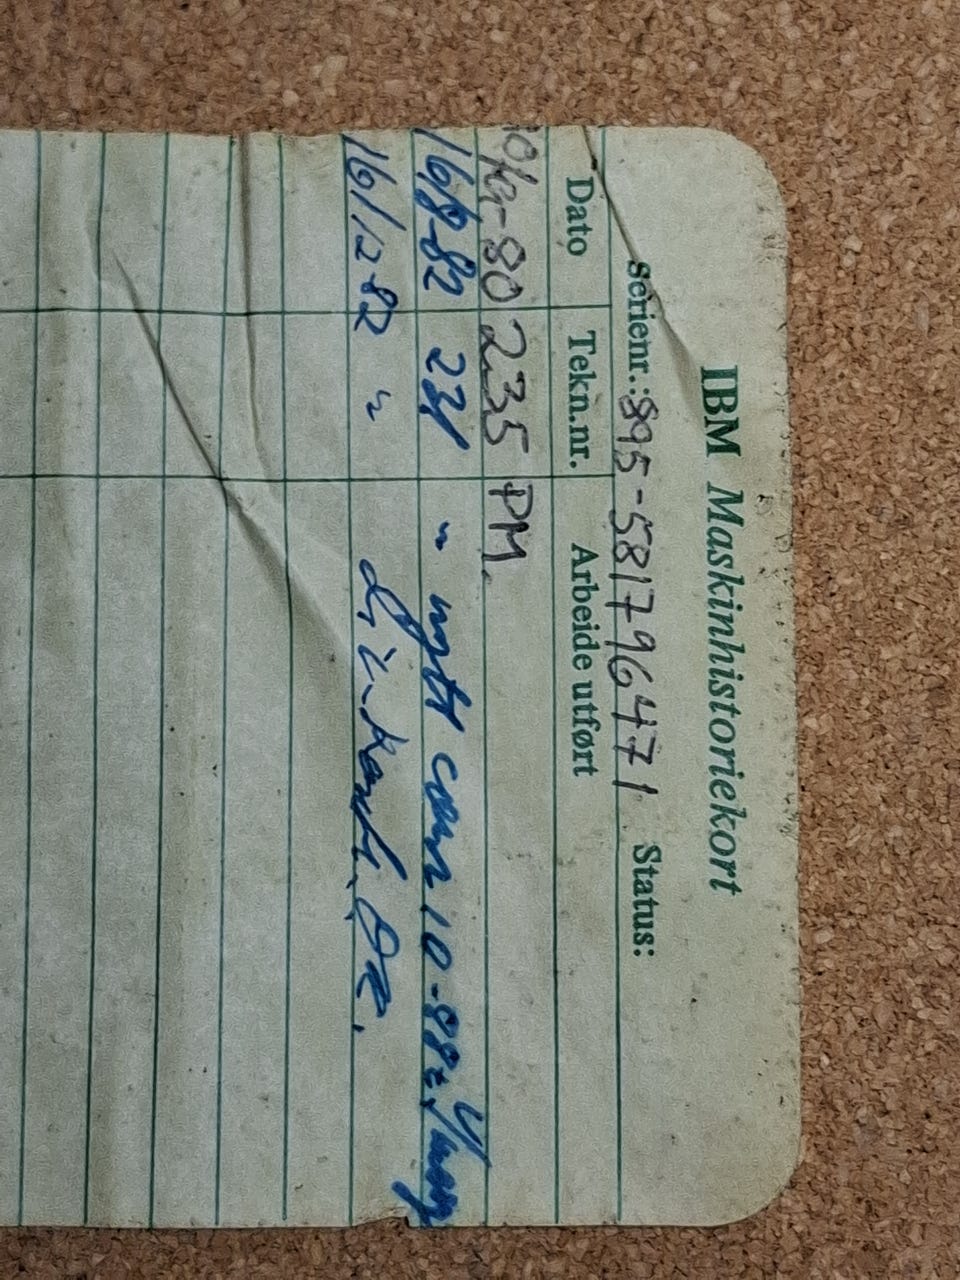 IBM Maskinhistoriekort
serienr.: 895-581796471 Status:
Dato Tekn.nr. Arbeide utført
-80 235 PM.
16/8-82 231 " nytt 10-88
16/12-82 " OK.